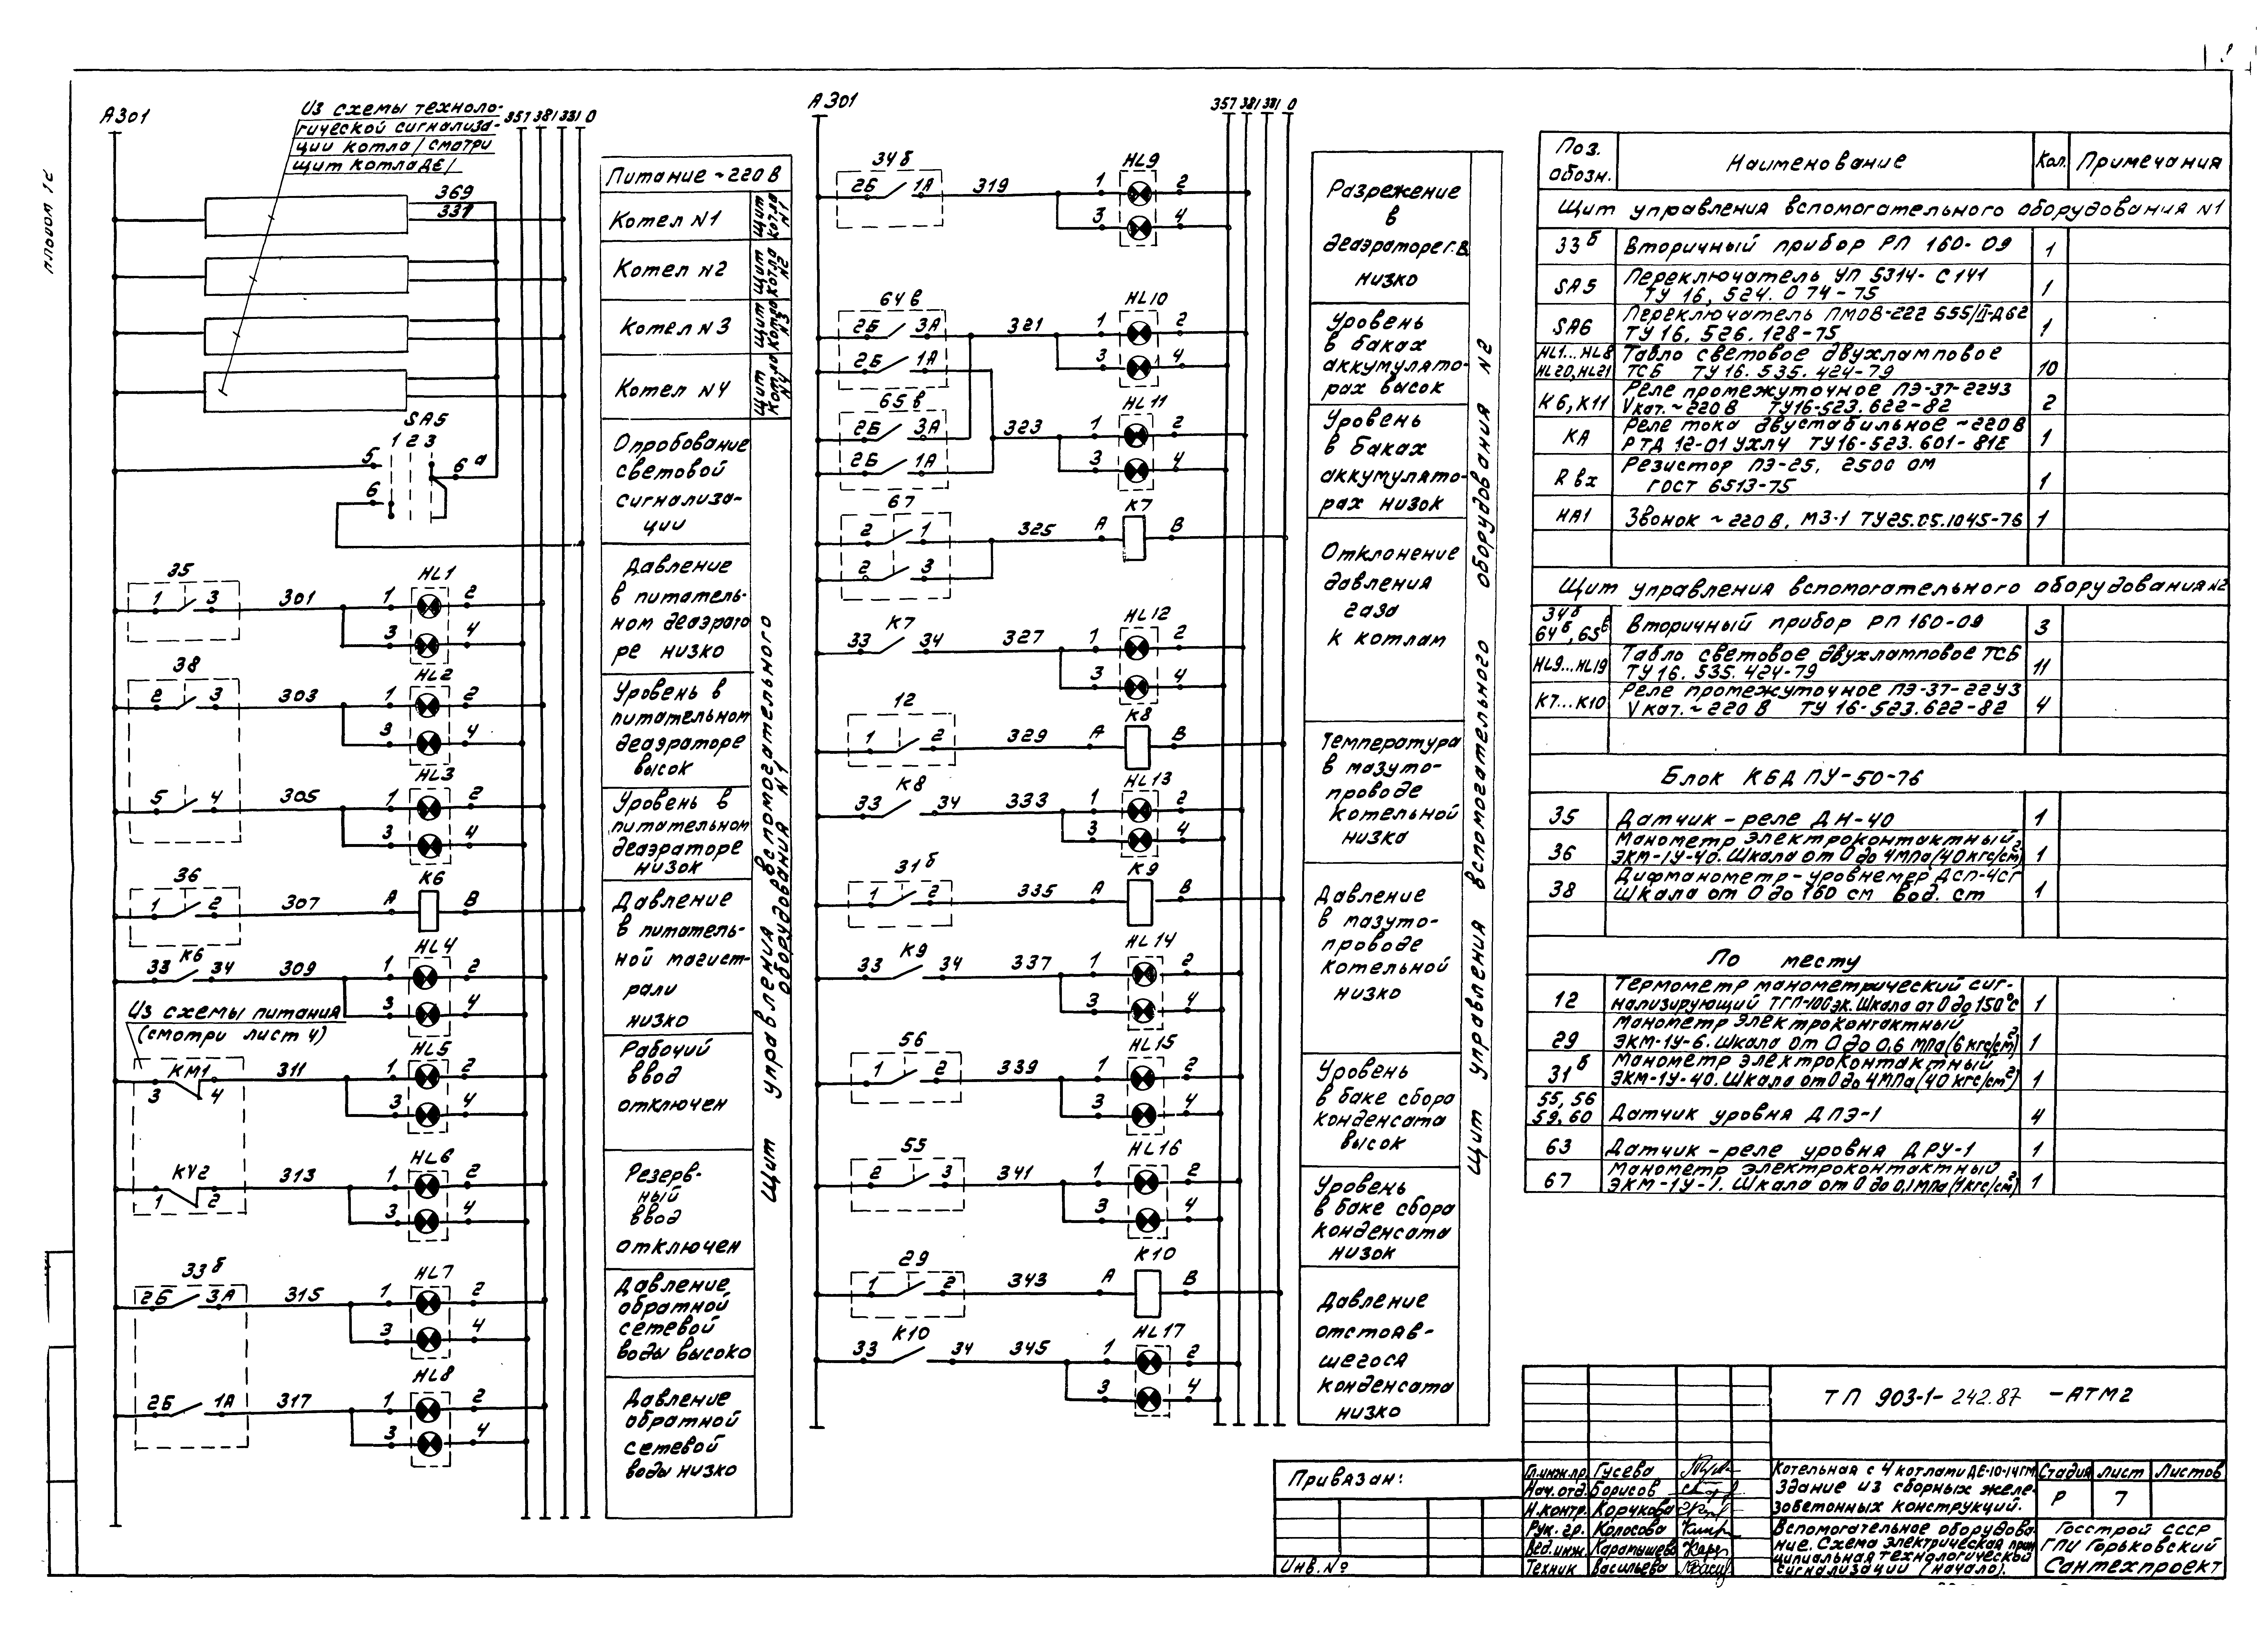 Альбом 1с
А301
Из схемы техноло-
гической сигнализа-
ции котла /смотри
щит котла ДЕ/
357 381 331 0
369
331
SA5
1 2 3
5
6а
6
35
1 3 301 1 HL1 2
3 4
38
2 3 303 1 HL2 2
3 4
5 4 305 1 HL3 2
3 4
36
1 2 307 А К6 В
К6
33 34 309 1 HL4 2
3 4
Из схемы питания
(смотри лист 4)
КМ1
3 4 311 1 HL5 2
3 4
КУ2
1 2 313 1 HL6 2
3 4
33б
2Б 3А 315 1 HL7 2
3 4
2Б 1А 317 1 HL8 2
3 4
Питание ~220 В
Котел №1
Щит котла №1
Котел №2
Щит котла №2
Котел №3
Щит котла №3
Котел №4
Щит котла №4
Опробование
световой
сигнализа-
ции
Давление
в питатель-
ном деаэрато
ре низко
Уровень в
питательном
деаэраторе
высок
Уровень в
питательном
деаэраторе
низок
Давление
в питатель-
ной магист-
рали
низко
Рабочий
ввод
отключен
Резерв-
ный
ввод
отключен
Давление
обратной
сетевой
воды высоко
Давление
обратной
сетевой
воды низко
Щит управления вспомогательного
оборудования №1
А301
357 381 331 0
34б
2Б 1А 319 1 HL9 2
3 4
64в
2Б 3А 321 1 HL10 2
2Б 1А 3 4
65в
2Б 3А 323 1 HL11 2
2Б 1А 3 4
67
2 1 325 А К7 В
2 3
К7
33 34 327 1 HL12 2
3 4
12
1 2 329 А К8 В
К8
33 34 333 1 HL13 2
3 4
31б
1 2 335 А К9 В
К9
33 34 337 1 HL14 2
3 4
56
1 2 339 1 HL15 2
3 4
55
2 3 341 1 HL16 2
3 4
29
1 2 343 А К10 В
К10
33 34 345 1 HL17 2
3 4
Разрежение
в
деаэраторе г.в.
низко
Уровень
в баках
аккумулято-
рах высок
Уровень
в баках
аккумулято-
рах низок
Отклонение
давления
газа
к котлам
Температура
в мазуто-
проводе
котельной
низка
Давление
в мазуто-
проводе
котельной
низко
Уровень
в баке сбора
конденсата
высок
Уровень
в баке сбора
конденсата
низок
Давление
отстояв-
шегося
конденсата
низко
Щит управления вспомогательного оборудования №2
Поз. обозн. Наименование Кол. Примечания
Щит управления вспомогательного оборудования №1
33б Вторичный прибор РП 160-09 1
SA5 Переключатель УП 5314-С141
ТУ 16.524.074-75 1
SA6 Переключатель ПМОВ-222 555/II-Д62
ТУ 16.526.128-75 1
HL1...HL8 Табло световое двухламповое
HL20,HL21 ТСБ ТУ 16.535.424-79 10
К6, К11 Реле промежуточное ПЭ-37-22У3
Vкат.~220 В ТУ16-523.622-82 2
КА Реле тока двустабильное ~220В
РТД 12-01 УХЛ4 ТУ16-523.601-81Е 1
Rвх Резистор ПЭ-25, 2500 Ом
ГОСТ 6513-75 1
НА1 Звонок ~220 В, МЗ-1 ТУ25.05.1045-76 1
Щит управления вспомогательного оборудования №2
34б
64б, 65в Вторичный прибор РП 160-09 3
HL9...HL19 Табло световое двухламповое ТСБ
ТУ 16.535.424-79 11
К7...К10 Реле промежуточное ПЭ-37-22У3
Vкат.~220 В ТУ 16-523.622-82 4
Блок КБДПУ-50-76
35 Датчик-реле ДН-40 1
36 Манометр электроконтактный
ЭКМ-1У-40. Шкала от 0 до 4МПа/40кгс/см²) 1
38 Дифманометр-уровнемер ДСП-4СГ
Шкала от 0 до 160 см вод. ст 1
По месту
12 Термометр манометрический сиг-
нализирующий ТГП-100эк. Шкала от 0 до 150°С 1
29 Манометр электроконтактный
ЭКМ-1У-6. Шкала от 0 до 0,6 МПа(6кгс/см²) 1
31б Манометр электроконтактный
ЭКМ-1У-40. Шкала от 0 до 4МПа/40кгс/см²) 1
55, 56
59, 60 Датчик уровня ДПЭ-1 4
63 Датчик-реле уровня ДРУ-1 1
67 Манометр электроконтактный
ЭКМ-1У-1. Шкала от 0 до 0,1МПа(1кгс/см²) 1
Привязан:
Инв.№
ТП 903-1-242.87 -АТМ2
Гл.инж.пр. Гусева
Нач.отд. Борисов
Н.контр. Корчкова
Рук.гр. Колосова
Вед.инж. Каратышева
Техник Васильева
Котельная с 4 котлами ДЕ-10-14ГМ
Здание из сборных желе-
зобетонных конструкций.
Стадия Лист Листов
Р 7
Вспомогательное оборудова-
ние. Схема электрическая прин
ципиальная технологической
сигнализации (начало).
Госстрой СССР
ГПИ Горьковский
Сантехпроект